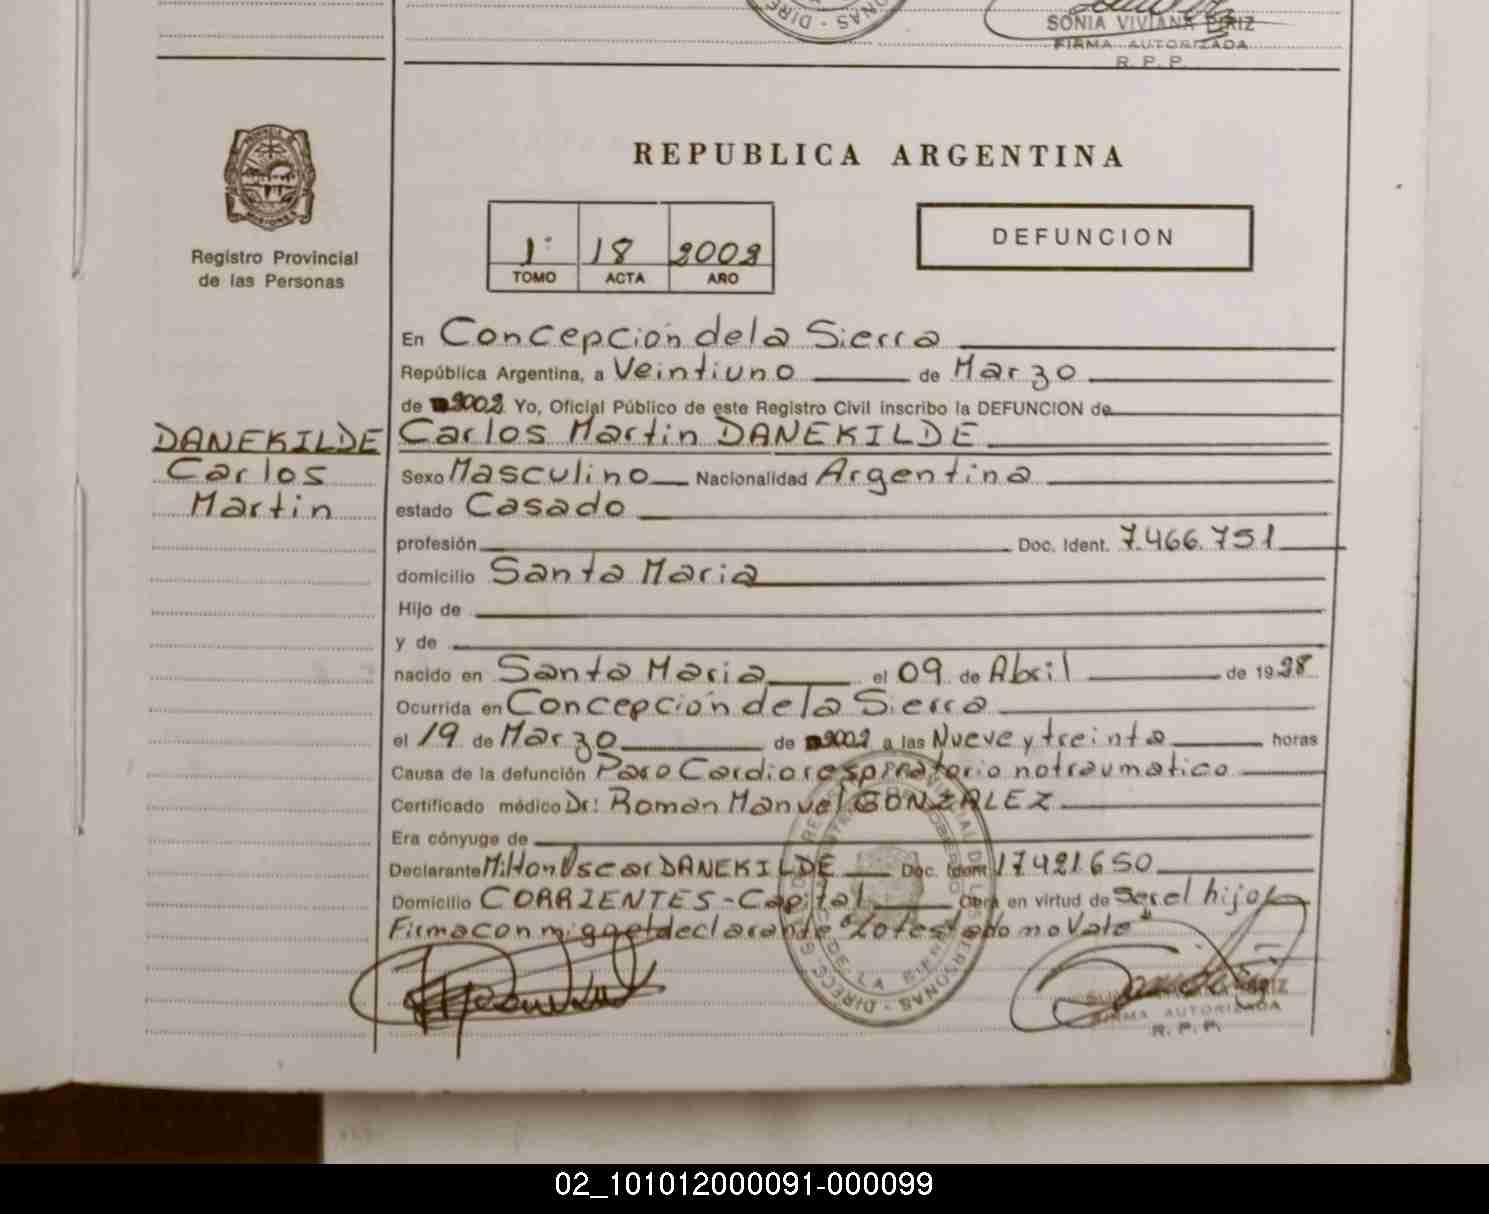 SONIA VIVIANA PIRIZ
FIRMA AUTORIZADA
R. P. P.
REPUBLICA ARGENTINA
Registro Provincial
de las Personas
1: 18 2002
TOMO ACTA AÑO
DEFUNCION
En Concepción de la Sierra
República Argentina, a Veintiuno de Marzo
de 2002 Yo, Oficial Público de este Registro Civil inscribo la DEFUNCION de
DANEKILDE
Carlos
Martin
Carlos Martin DANEKILDE
Sexo Masculino Nacionalidad Argentina
estado Casado
profesión Doc. Ident. 7.466.751
domicilio Santa Maria
Hijo de
y de
nacido en Santa Maria el 09 de Abril de 1928
Ocurrida en Concepción de la Sierra
el 19 de Marzo de 2002 a las Nueve y treinta horas
Causa de la defunción Paro Cardiorespiratorio no traumatico
Certificado médico Dr: Roman Manuel GONZALEZ
Era cónyuge de
Declarante Milton Oscar DANEKILDE Doc. Ident. 17.421.650
Domicilio CORRIENTES - Capital Obra en virtud de ser el hijo
Firma con migo el declarante "Lo testado no Vale"
FIRMA AUTORIZADA
R. P. P.
02_101012000091-000099